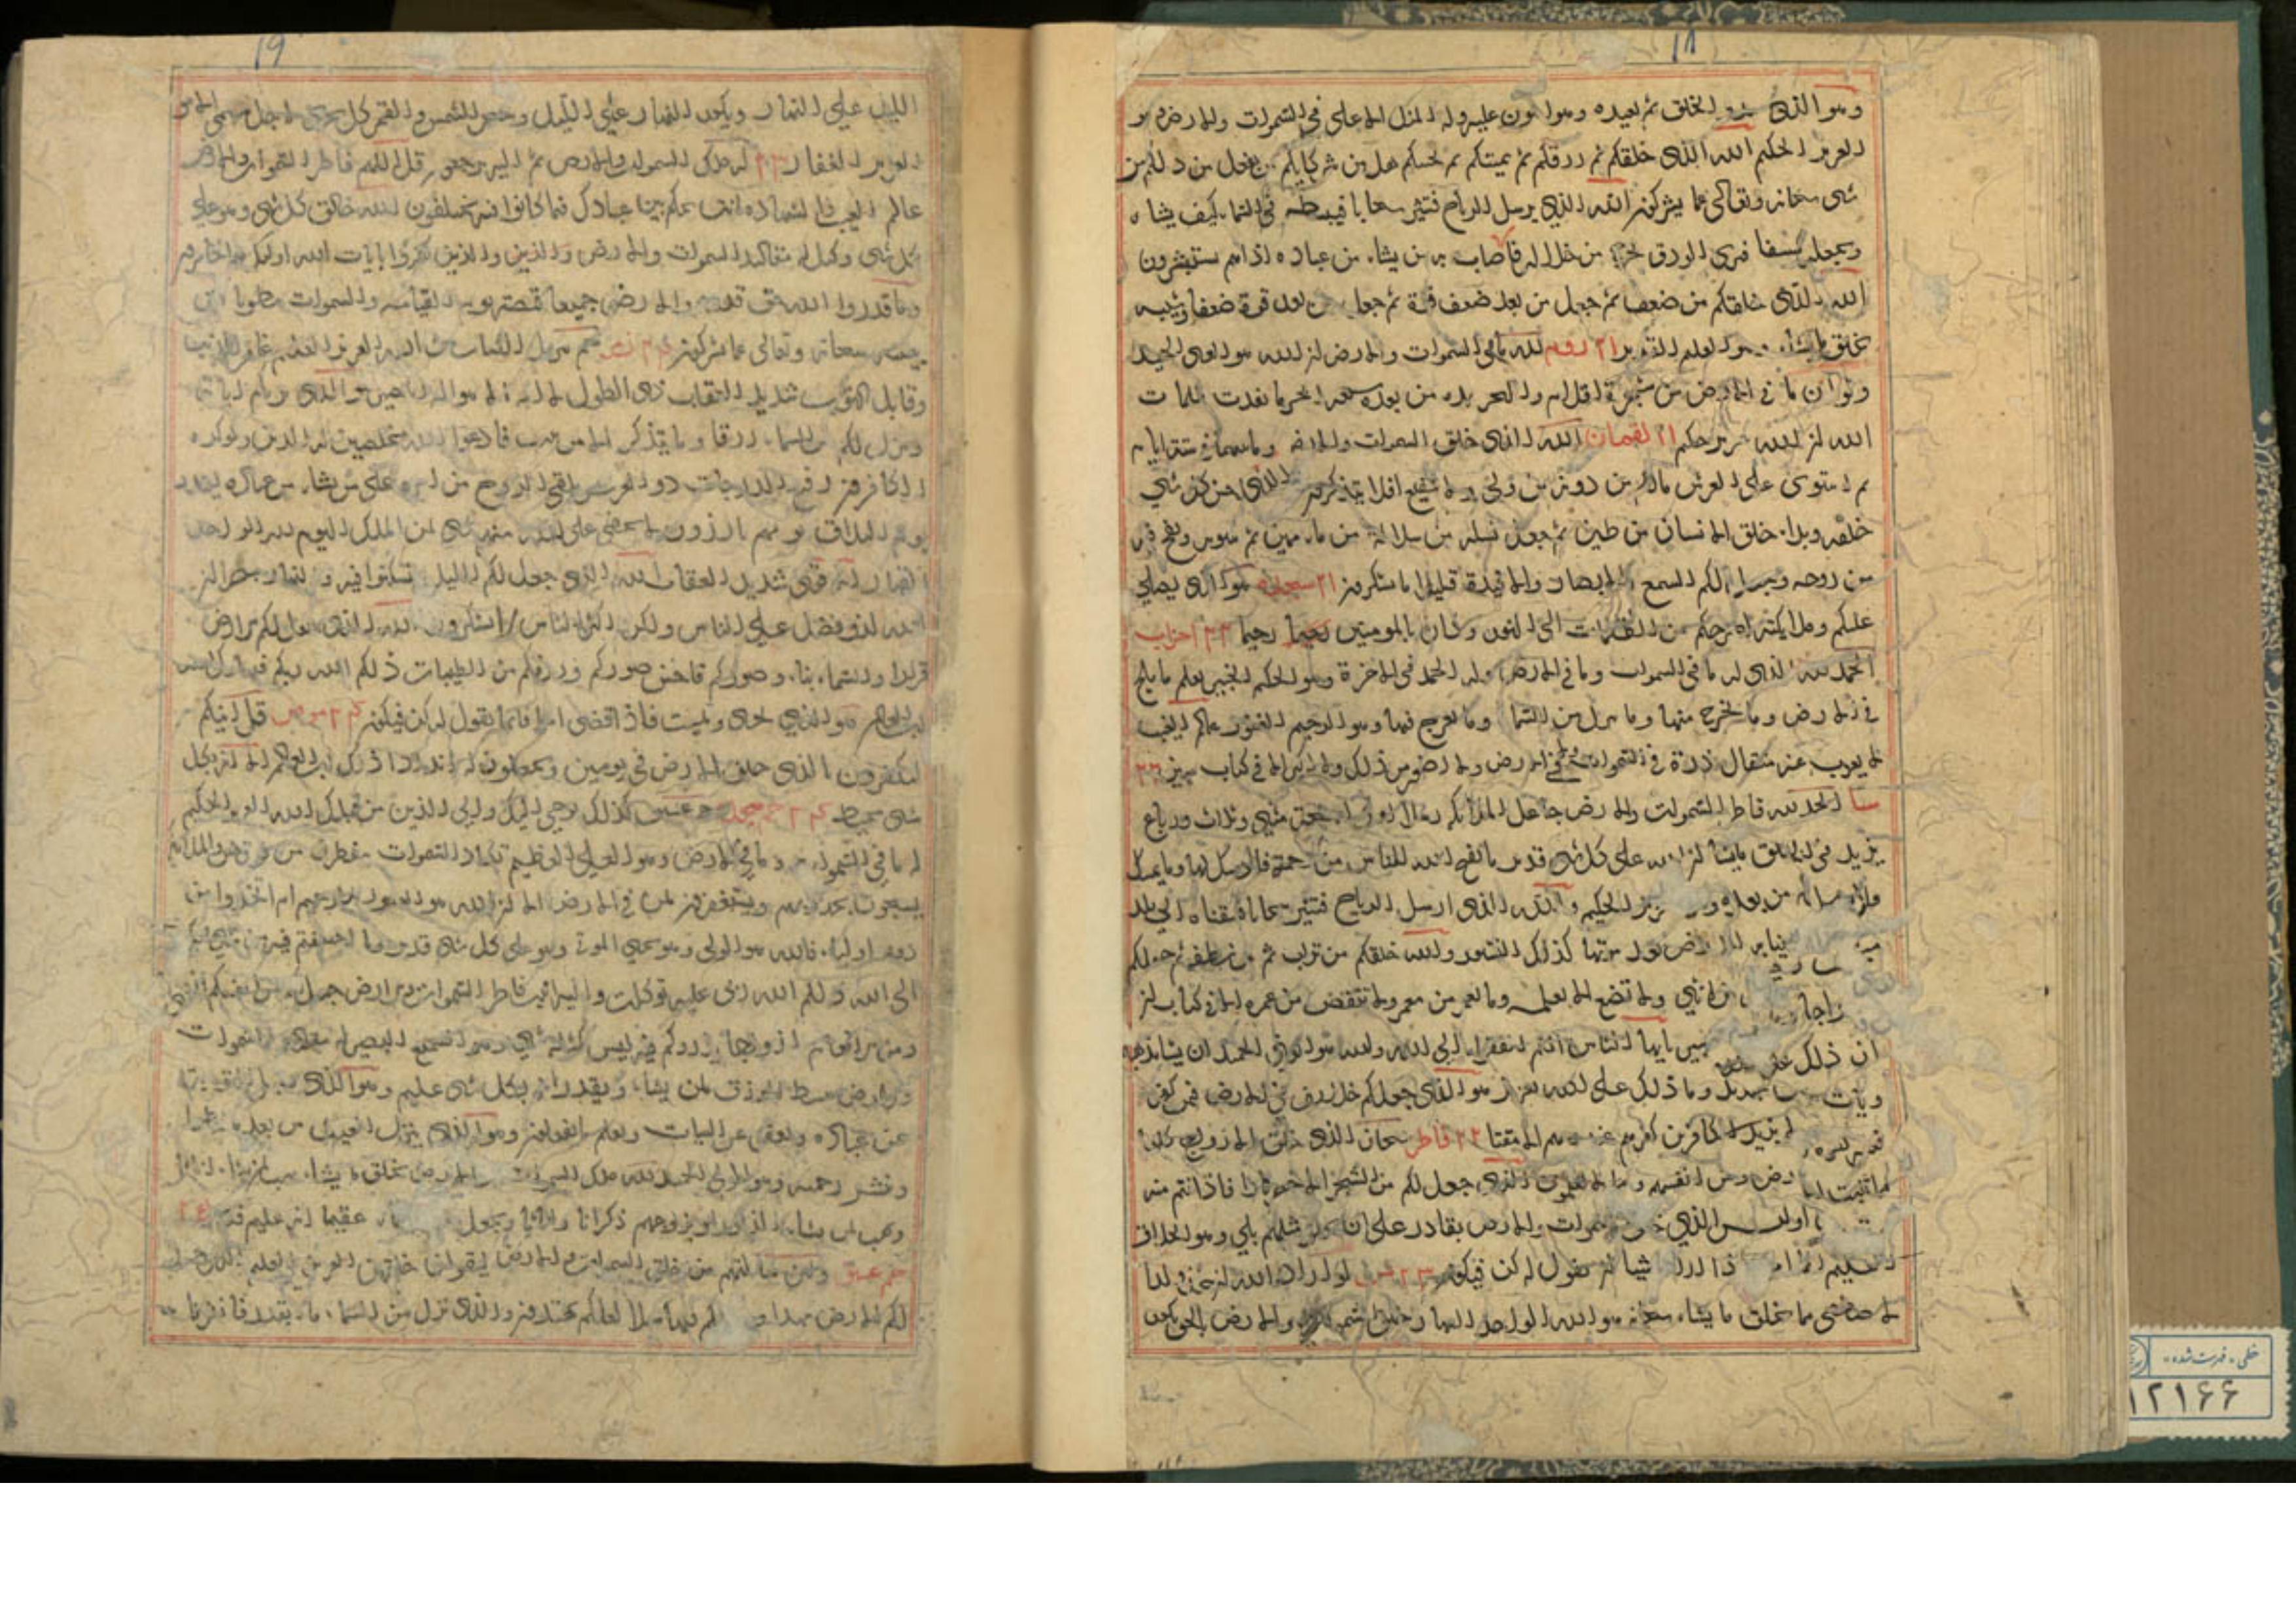 ١٨
وهو الذى يبدو الخلق ثم يعيده وهو اهون عليه وله المثل الاعلى فى السموات والارض وهو
العزيز الحكيم الله الذى خلقكم ثم رزقكم ثم يميتكم ثم يحييكم هل من شركايكم من يفعل من ذلكم من
شى سبحانه وتعالى عما يشركون الله الذى يرسل الرياح فتثير سحابا فيبسطه فى السماء كيف يشاء
ويجعله كسفا فترى الودق يخرج من خلاله فاذا اصاب به من يشاء من عباده اذا هم يستبشرون
الله الذى خلقكم من ضعف ثم جعل من بعد ضعف قوة ثم جعل من بعد قوة ضعفا وشيبه
يخلق ما يشاء وهو العليم القدير ٢١ روم لله ما فى السموات والارض ان الله هو الغنى الحميد
ولو ان ما فى الارض من شجرة اقلام والبحر يمده من بعده سبعة ابحر ما نفدت كلمات
الله ان الله عزيز حكيم ٢١ لقمان الله الذى خلق السموات والارض وما بينهما فى ستة ايام
ثم استوى على العرش مالكم من دونه من ولى ولا شفيع افلا تتذكرون الذى احسن كل شي
خلقه وبدا خلق الانسان من طين ثم جعل نسله من سلالة من ماء مهين ثم سويه ونفخ فيه
من روحه وجعل لكم السمع والابصار والافيدة قليلا ما تشكرون ٢١ سجده هو الذى يصلي
عليكم وملايكته ليخرجكم من الظلمات الى النور وكان بالمومنين رحيما ٢٢ احزاب
الحمد لله الذى له ما فى السموات وما فى الارض وله الحمد فى الاخرة وهو الحكيم الخبير يعلم ما يلج
فى الارض وما يخرج منها وما ينزل من السماء وما يعرج فيها وهو الرحيم الغفور عالم الغيب
لا يعزب عنه مثقال ذرة فى السموات ولا فى الارض ولا اصغر من ذلك ولا اكبر الا فى كتاب مبين ٢٢
سبا الحمد لله فاطر السموات والارض جاعل الملائكة رسلا اولى اجنحة مثنى وثلاث ورباع
يزيد فى الخلق ما يشا ان الله على كل شى قدير ما يفتح الله للناس من رحمة فلا ممسك لها وما يمسك
فلا مرسل له من بعده وهو العزيز الحكيم والله الذى ارسل الرياح فتثير سحابا فسقناه الى بلد
ميت فاحيينا به الارض بعد موتها كذلك النشور والله خلقكم من تراب ثم من نطفة ثم جعلكم
ازواجا من انثي ولا تضع الا بعلمه وما يعمر من معمر ولا ينقص من عمره الا فى كتاب ان
ان ذلك على يا ايها الناس انتم الفقراء الى الله والله هو الغنى الحميد ان يشا يذهبكم
ويات جديد وما ذلك على الله بعزيز هو الذى جعلكم خلايف فى الارض فمن كفر
فعليه كفره ولا يزيد الكافرين كفرهم عند ربهم الا مقتا ٢٢ فاطر سبحان الذى خلق الازواج كلها
مما تنبت الارض ومن انفسهم ومما لا يعلمون الذى جعل لكم من الشجر الاخضر نارا فاذا انتم منه
اوليس الذي خلق السموات والارض بقادر على ان يخلق مثلهم بلى وهو الخلاق
العليم انما امره اذا اراد شيا ان يقول له كن فيكون ٢٣ يس لو اراد الله ان يتخذ ولدا
لاصطفى مما يخلق ما يشاء سبحانه هو الله الواحد القهار خلق السموات والارض بالحق يكور
١٩
الليل على النهار ويكور النهار على الليل وسخر الشمس والقمر كل يجرى لاجل مسمى الا هو
العزيز الغفار ٢٣ له ملك السموات والارض ثم اليه ترجعون قل اللهم فاطر السموات والارض
عالم الغيب والشهادة انت تحكم بين عبادك فيما كانوا فيه يختلفون الله خالق كل شى وهو على
كل شى وكيل له مقاليد السموات والارض والذين كفروا بايات الله اوليك هم الخاسرون
وما قدروا الله حق قدره والارض جميعا قبضته يوم القيامه والسموات مطويات
بيمينه سبحانه وتعالى عما يشركون حم تنزيل الكتاب من الله العزيز العليم غافر الذنب
وقابل التوب شديد العقاب ذى الطول لا اله الا هو اليه المصير هو الذى يريكم اياته
وينزل لكم من السماء رزقا وما يتذكر الا من ينيب فادعوا الله مخلصين له الدين ولو كره
الكافرون رفيع الدرجات ذو العرش يلقى الروح من امره على من يشاء من عباده لينذر
يوم التلاق يوم هم بارزون لا يخفى على الله منهم شى لمن الملك اليوم لله الواحد
القهار انه قوى شديد العقاب الله الذى جعل لكم الليل لتسكنوا فيه والنهار مبصرا ان
الله لذو فضل على الناس ولكن اكثر الناس لا يشكرون الله الذى جعل لكم الارض
قرارا والسماء بناء وصوركم فاحسن صوركم ورزقكم من الطيبات ذلكم الله ربكم فتبارك الله
رب العالمين هو الذي يحيى ويميت فاذا قضى امرا فانما يقول له كن فيكون قل اينكم
لتكفرون بالذى خلق الارض فى يومين وتجعلون له اندادا ذلك رب العالمين الا انه بكل
شى محيط حم سجده حم عسق كذلك يوحى اليك والى الذين من قبلك الله العزيز الحكيم
له ما فى السموات وما فى الارض وهو العلى العظيم تكاد السموات يتفطرن من فوقهن والملائكة
يسبحون بحمد ربهم ويستغفرون لمن فى الارض الا ان الله هو الغفور الرحيم ام اتخذوا من
دونه اولياء فالله هو الولى وهو يحيى الموتى وهو على كل شى قدير وما اختلفتم فيه من شى
الى الله ذلكم الله ربى عليه توكلت واليه انيب فاطر السموات والارض جعل لكم من انفسكم ازواجا
ومن الانعام ازواجا يذروكم فيه ليس كمثله شي وهو السميع البصير له مقاليد السموات
والارض يبسط الرزق لمن يشاء ويقدر انه بكل شى عليم وهو الذى يقبل التوبة
عن عباده ويعفو عن السيات ويعلم ما تفعلون وهو الذى ينزل الغيث من بعد ما قنطوا
وينشر رحمته وهو الولى الحميد لله ملك السموات والارض يخلق ما يشاء يهب لمن يشاء اناثا
ويهب لمن يشاء الذكور او يزوجهم ذكرانا واناثا ويجعل من يشاء عقيما انه عليم قدير
حم عسق ولئن سالتهم من خلق السموات والارض ليقولن خلقهن العزيز العليم الذى جعل
لكم الارض مهدا وجعل لكم فيها سبلا لعلكم تهتدون والذى نزل من السماء ماء بقدر فانشرنا
خطى - فهرست شده
١٢١۶۶